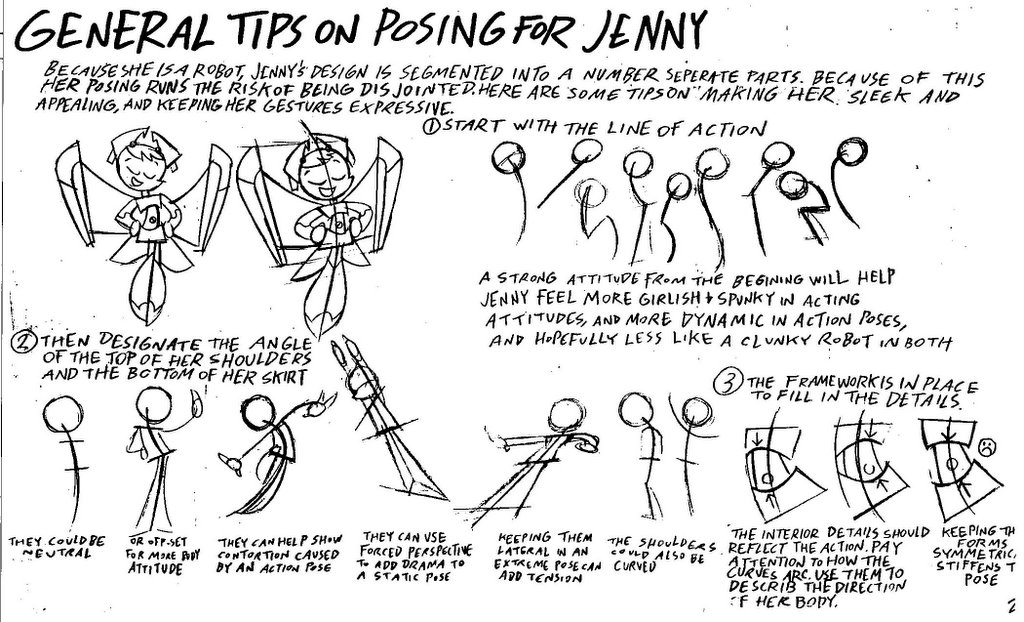 GENERAL TIPS ON POSING FOR JENNY
BECAUSE SHE IS A ROBOT, JENNY'S DESIGN IS SEGMENTED INTO A NUMBER SEPERATE PARTS. BECAUSE OF THIS
HER POSING RUNS THE RISK OF BEING DISJOINTED. HERE ARE SOME TIPS ON MAKING HER SLEEK AND
APPEALING, AND KEEPING HER GESTURES EXPRESSIVE.
① START WITH THE LINE OF ACTION
A STRONG ATTITUDE FROM THE BEGINING WILL HELP
JENNY FEEL MORE GIRLISH & SPUNKY IN ACTING
ATTITUDES, AND MORE DYNAMIC IN ACTION POSES,
AND HOPEFULLY LESS LIKE A CLUNKY ROBOT IN BOTH
② THEN DESIGNATE THE ANGLE
OF THE TOP OF HER SHOULDERS
AND THE BOTTOM OF HER SKIRT
THEY COULD BE
NEUTRAL
OR OFF-SET
FOR MORE BODY
ATTITUDE
THEY CAN HELP SHOW
CONTORTION CAUSED
BY AN ACTION POSE
THEY CAN USE
FORCED PERSPECTIVE
TO ADD DRAMA TO
A STATIC POSE
KEEPING THEM
LATERAL IN AN
EXTREME POSE CAN
ADD TENSION
THE SHOULDERS
COULD ALSO BE
CURVED
③ THE FRAMEWORK IS IN PLACE
TO FILL IN THE DETAILS.
THE INTERIOR DETAILS SHOULD
REFLECT THE ACTION. PAY
ATTENTION TO HOW THE
CURVES ARC. USE THEM TO
DESCRIB THE DIRECTION
OF HER BODY.
KEEPING TH
FORMS
SYMMETRIC
STIFFENS T
POSE
2